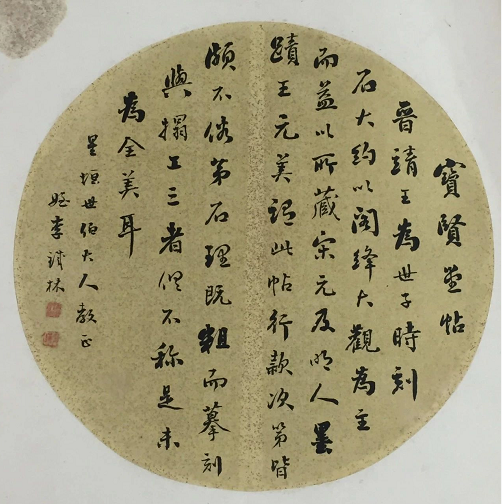 寶賢堂帖
晉靖王為世子時刻
石大約以閣絳大觀為主
而益以所藏宋元及明人墨
蹟王元美謂此帖行款次第皆
頗不俗第石理既粗而摹刻
與搨工三者俱不称是未
為全美耳
星垣世伯大人教正
姪李林